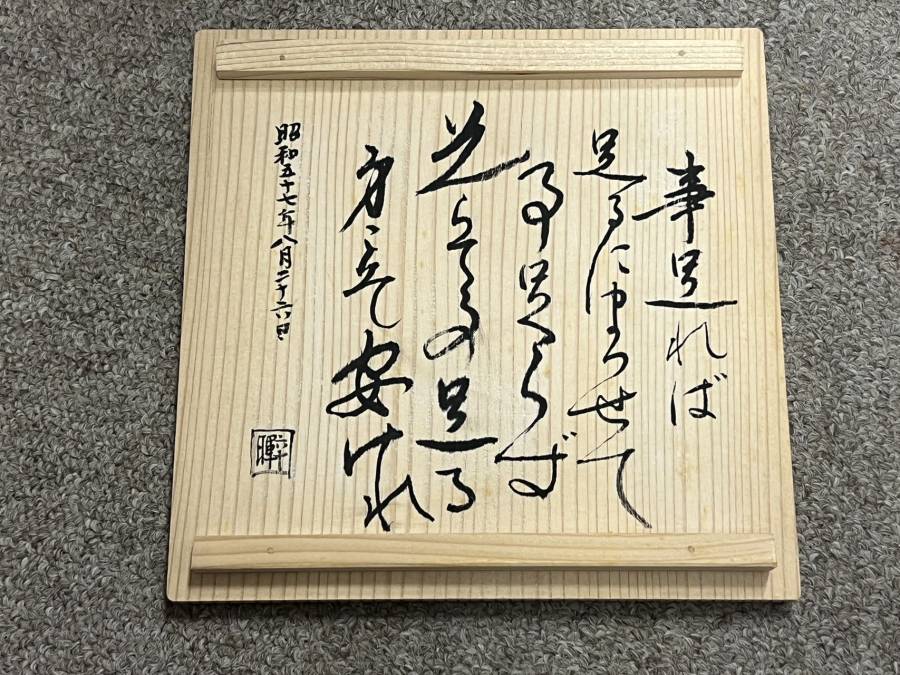 事足れば
足るにまかせて
事足らず
足らて事足る
身こそ安けれ
昭和五十七年八月二十六日